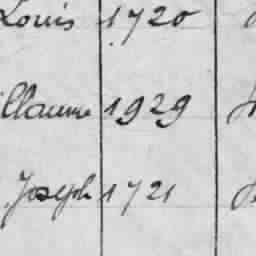 Louis 1920
illaume 1929
Joseph 1921